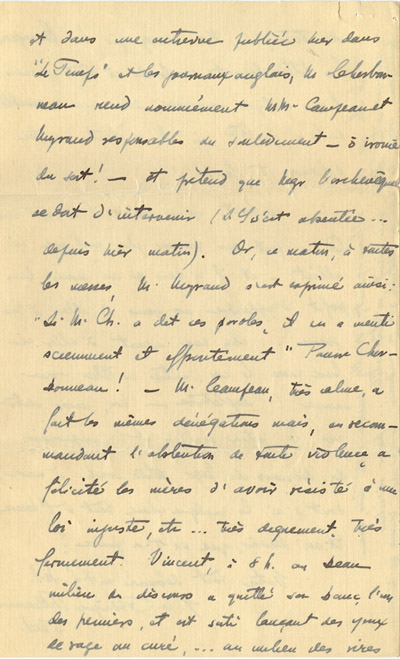 et dans une entrevue publiée hier dans
"Le Temps" et les journaux anglais, M. Charbon-
neau rend nommément MM. Campeau et
Myrand responsables du soulèvement – ô ironie
du sort! – et prétend que Mgr l'archevêque
se doit d'intervenir (Il s'est absenté...
depuis hier matin). Or, ce matin, à toutes
les messes, M. Myrand s'est exprimé ainsi:
"Si M. Ch. a dit ces paroles, il en a menti
sciemment et effrontément" Pauvre Char-
bonneau! – M. Campeau, très calme, a
fait les mêmes dénégations mais, en recom-
mandant l'abstention de toute violence, a
félicité les mères d'avoir résisté à une
loi injuste, etc ... très dignement, très
fermement. Vincent, à 8 h. au beau
milieu du discours a quitté son banc, l'un
des premiers, et est sorti lançant des yeux
de rage au curé, ... au milieu des rires